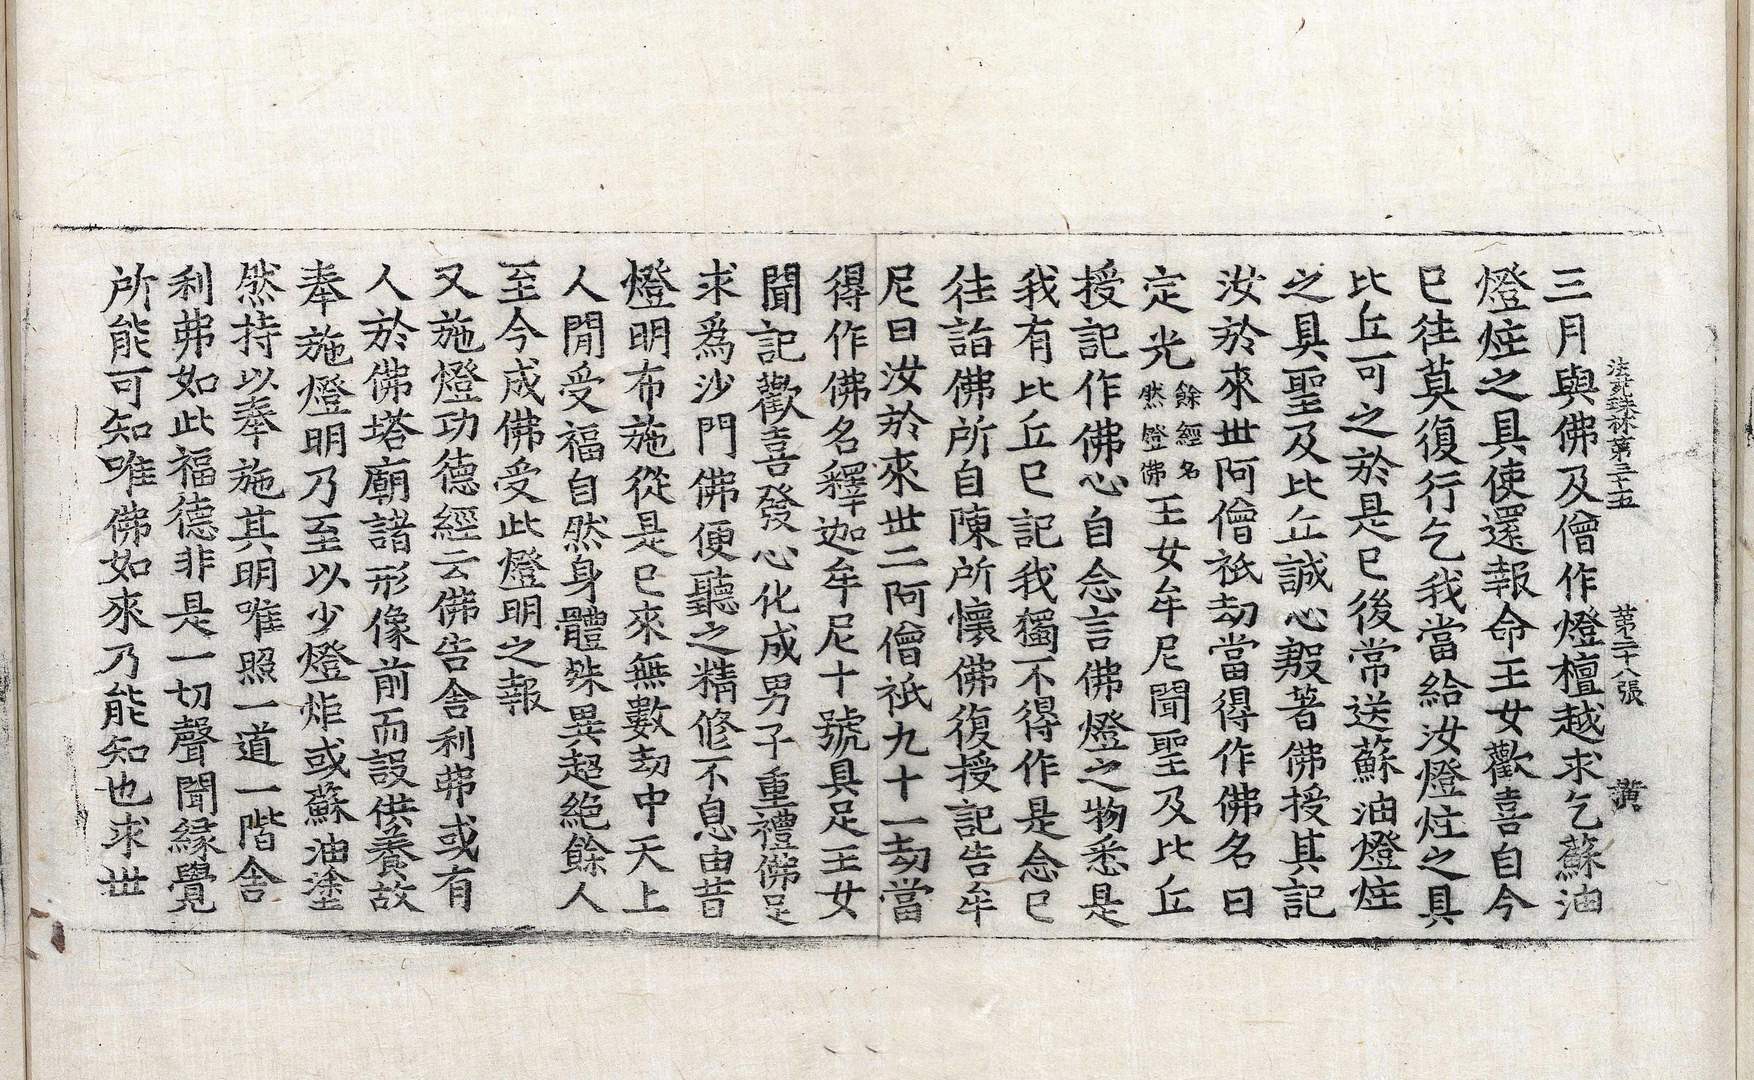 法苑珠林第三十五 第二十八張 潢
三月與佛及僧作燈檀越求乞蘇油
燈炷之具使還報命王女歡喜自今
已往莫復行乞我當給汝燈炷之具
比丘可之於是已後常送蘇油燈炷
之具聖及比丘誠心款著佛授其記
汝於來世阿僧祇劫當得作佛名曰
定光餘經名然燈佛王女牟尼聞聖及比丘
授記作佛心自念言佛燈之物悉是
我有比丘已記我獨不得作是念已
往詣佛所自陳所懷佛復授記告牟
尼曰汝於來世二阿僧祇九十一劫當
得作佛名釋迦牟尼十號具足王女
聞記歡喜發心化成男子重禮佛足
求爲沙門佛便聽之精修不息由昔
燈明布施從是已來無數劫中天上
人閒受福自然身體殊異超絶餘人
至今成佛受此燈明之報
又施燈功德經云佛告舍利弗或有
人於佛塔廟諸形像前而設供養故
奉施燈明乃至以少燈炷或蘇油塗
然持以奉施其明唯照一道一階舍
利弗如此福德非是一切聲聞緣覺
所能可知唯佛如來乃能知也求世